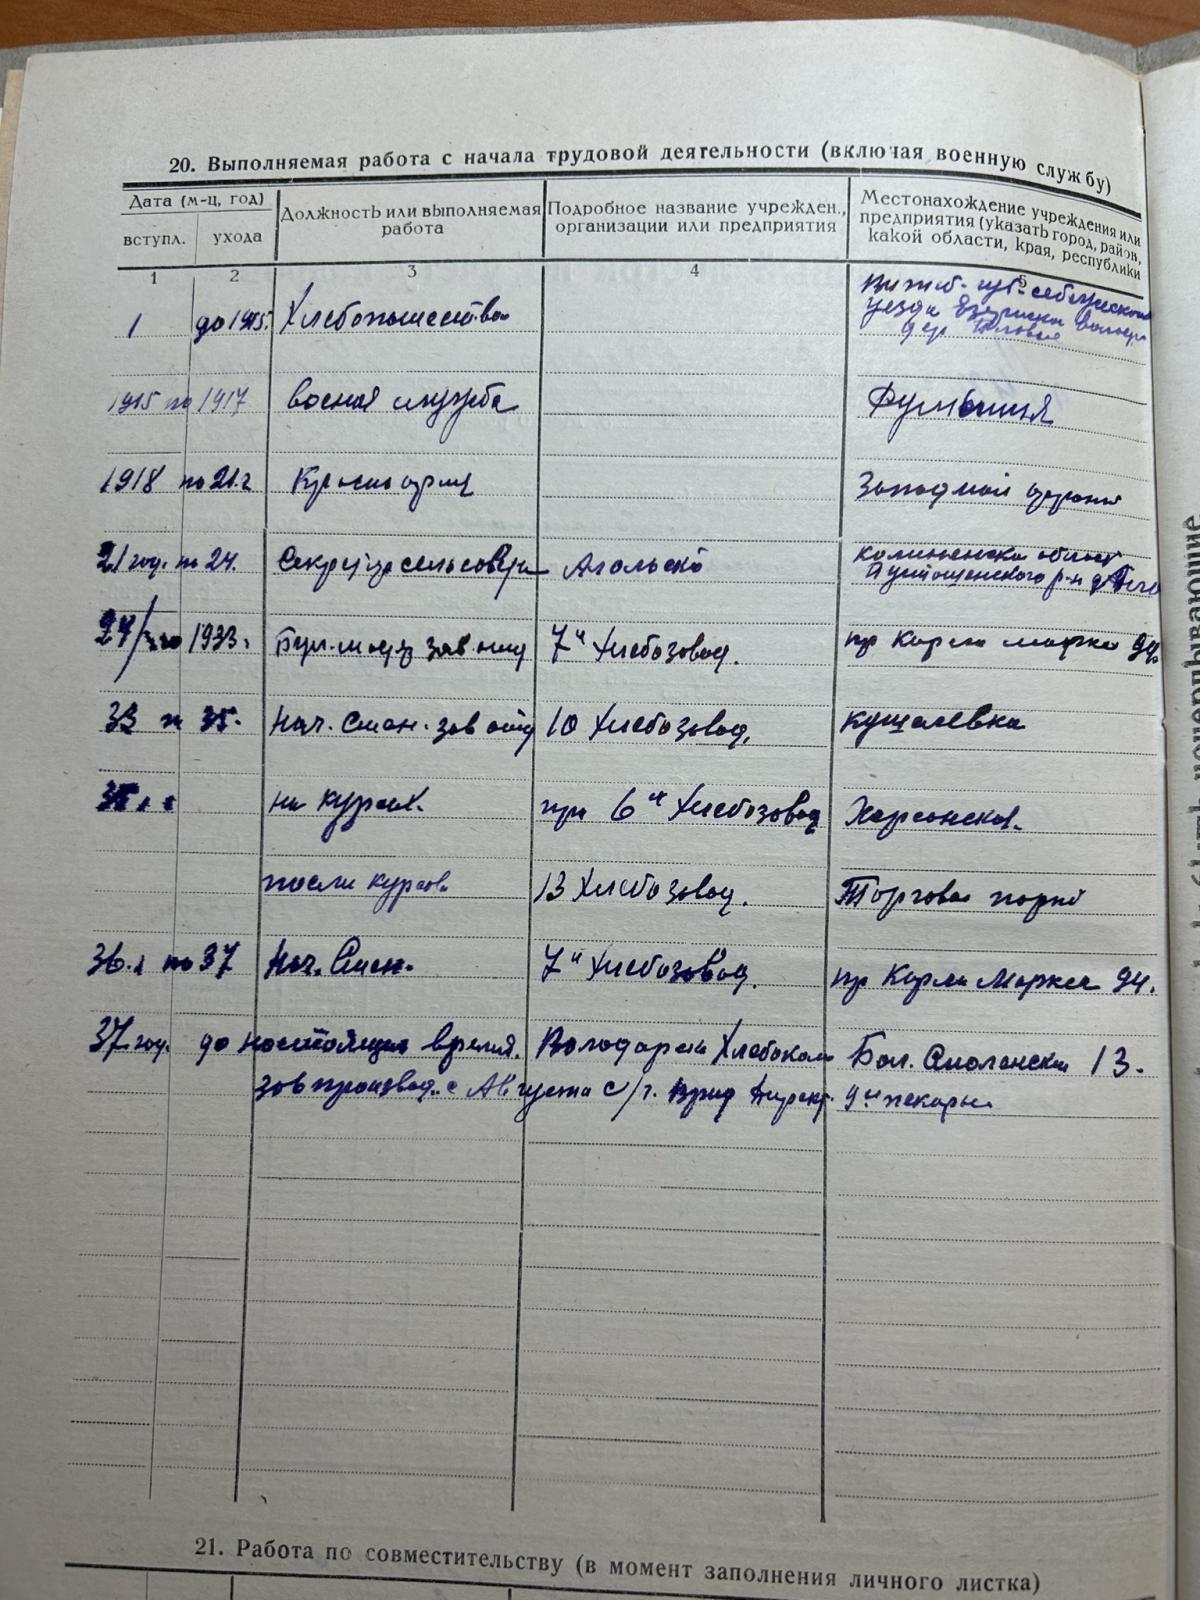 20. Выполняемая работа с начала трудовой деятельности (включая военную службу)
Дата (м-ц, год)
вступл.
ухода
Должность или выполняемая
работа
Подробное название учрежден.,
организации или предприятия
Местонахождение учреждения или
предприятия (указать город, район,
какой области, края, республики
1 2 3 4 5
до 1915. Хлебопашество
уезда
дер.
1915 по 1917 военая служба Румыния
1918 по 21 г Западной
21 год. по 24. Секретарь сельсовета
Пустошенского р-н
24/ 1933. зав. 7й Хлебозавод. пр Карла Маркса 94
33 п 35. Нач. Смен. зав 10 Хлебозавод. Кушелевка
35 на курсах. при 6й Хлебозавод Херсонская.
после курсов 13 Хлебозавод. Торговой порт
36 г по 37 Нач. Смен. 7й Хлебозавод. пр Карла Маркса 94.
37 год. до настоящее время. Володарский Бол. Смоленский 13.
зав производ. с Августа с/г. врид Директ. 9й пекарни
21. Работа по совместительству (в момент заполнения личного листка)